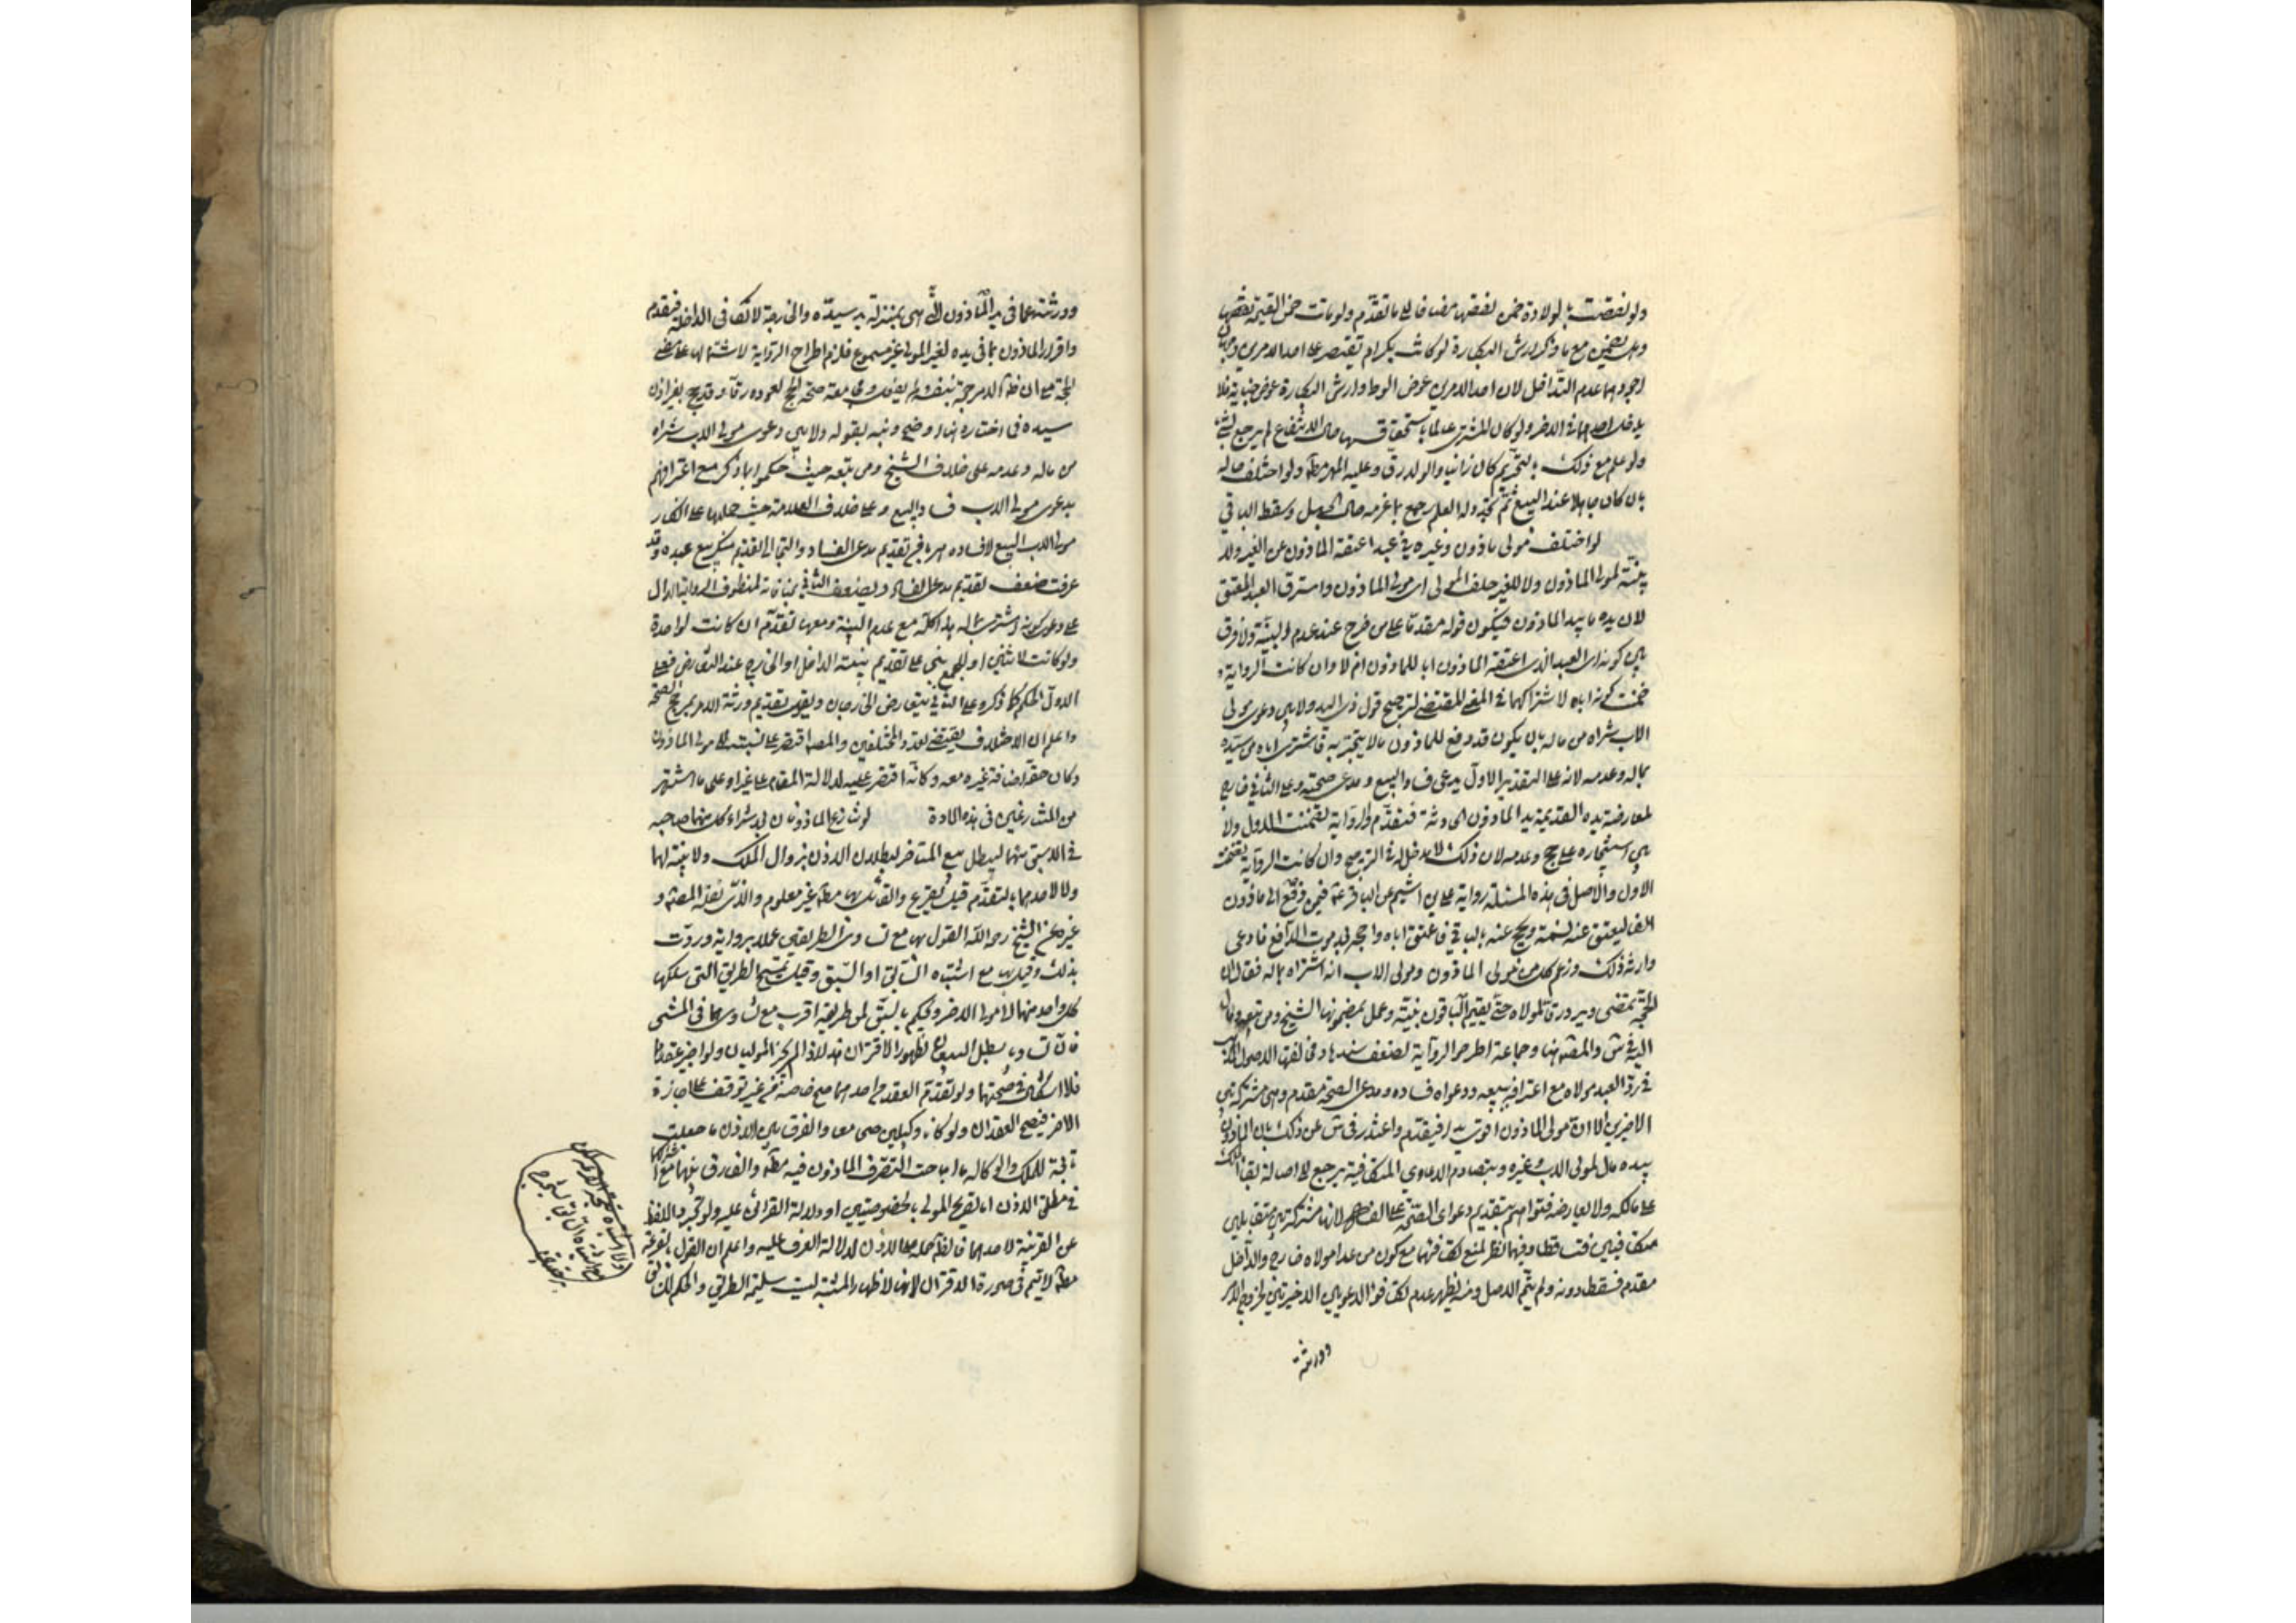 ولو نقصت بالولادة ضمن نقصها مضافا الى ما تقدم ولو ماتت ضمن القيمة بعضها
وهل يضمن مع ما ذكر ارش البكارة لو كانت بكرا ام تقتصر على احد الامرين وجهان
اجودهما عدم التداخل لان احد الامرين عوض الوطء وارش البكارة عوض جناية فلا
يدخل احدهما في الاخر ولو كان المشتري عالما باستحقاقها حال الانتفاع لم يرجع بشئ
ولو علم مع ذلك بالتحريم كان زانيا والولد رق وعليه المهر مطلقا ولو اختلف حاله
بان كان جاهلا عند البيع ثم تجدد له العلم رجع بما غرمه حال الجهل وسقط الباقي
لو اختلف مولى ماذون وغيره في عبد اعتقه الماذون عن الغير ولا
بينة لمولى الماذون ولا للغير حلف المولى اي مولى الماذون واسترق العبد المعتق
لان يده ما بيد الماذون فيكون قوله مقدما على من خرج عند عدم البينة ولا فرق
بين كونه اي العبد الذي اعتقه الماذون ابا للماذون ام لا وان كانت الرواية قد
ضمنت كونه اباه لاشتراكهما في المعنى المقتضي لترجيح قول ذي اليد ولا بين دعوى مولى
الاب شراه من ماله بان يكون قد دفع للماذون مالا يتجر به فاشترى اباه من سيده
بماله وعدمه لانه على التقدير الاول يدعي فساد البيع ومدعي صحته وعلى الثاني خارج
لمعارضة يده القديمة يد الماذون الحادثة فتقدم والرواية تضمنت الاول ولا
بين استيجاره على حج وعدمه لان ذلك لا مدخل له في الترجيح وان كانت الرواية تضمنت
الاول والاصل في هذه المسئلة رواية علي بن اشيم عن الباقر ع فيمن دفع الى ماذون
الفا ليعتق عنه نسمة ويحج عنه بالباقي فاعتق اباه واحجه بعد موت الدافع فادعى
وارثه ذلك وزعم كل من مولى الماذون ومولى الاب انه اشتراه بماله فقال ان
الحجة تمضي ويرد رقا لمولاه حتى يقيم الباقون بينة وعمل بمضمونها الشيخ ومن تبعه ومال
اليه في س والمص هنا وجماعة اطرحوا الرواية لضعف سندها ومخالفتها لاصول المذهب
في رد العبد لمولاه مع اعترافه ببيعه ودعواه فساده ومدعي الصحة مقدم وهي مشتركة بين
الاخيرين الا ان مولى الماذون اقوى يدا فيقدم واعتذر في س عن ذلك بان الماذون
بيده مال لمولى الاب وغيره وبتصادم الدعاوي المتكافية يرجع الى اصالة بقاء الملك
على مالكه ولا يعارضه فتواهم بتقديم دعوى الصحة على الفساد لانها مشتركة بين متقابلين
متكافيين فتساقطا وفيهما نظر لمنع تكافؤهما مع كون من عدا مولاه خارجا والداخل
مقدم فسقط دونه ولم يتم الاصل ومنه يظهر عدم تكافؤ الدعويين الاخيرتين لخروج الامر
وورثته
وورثته عما في يد الماذون الذي هي بمنزلة يد سيده والخارجة لا تكافئ الداخلة فتقدم
واقرار الماذون بما في يده لغير المولى غير مسموع فلزم اطراح الرواية لاشتمالها على مضي
الحجة مع ان ظاهر الامر حجه بنفسه ولم يفعل ومجامعة صحة الحج لعوده رقا وقد يحج بغير اذن
سيده فما اختاره هنا اوضح ونبه بقوله ولا بين دعوى مولى الاب شراه
من ماله وعدمه على خلاف الشيخ ومن تبعه حيث حكموا بما ذكر مع اعترافهم
بدعوى مولى الاب فساد البيع وعلى خلاف العلامة حيث حملها على انكار
مولى الاب البيع لا فساده هربا من تقديم مدعي الفساد والتجاء الى تقديم منكر بيع عبده وقد
عرفت ضعف تقديم مدعي الفساد ويضعف الثاني بمنافاته لمنطوق الرواية الدال
على دعوى كونه اشترى بماله هذا كله مع عدم البينة ومعها تقدم ان كانت لواحد
ولو كانت لاثنين او للجميع بني على تقديم بينة الداخل او الخارج عند التعارض فعلى
الاول الحكم كما ذكر وعلى الثاني يتعارض الخارجان ويقوى تقديم ورثة الامر بمرجح الصحة
واعلم ان الاختلاف يقتضي تعدد المختلفين والمصنف اقتصر على نسبته الى مولى الماذون
وكان حقه اضافة غيره معه وكانه اقتصر عليه لدلالة المقام على غيره او على ما اشتهر
من المتنازعين في هذه المادة لو تنازع الماذونان بعد شراء كل منهما صاحبه
في الاسبق منهما ليبطل بيع المتاخر لبطلان الاذن بزوال الملك ولا بينة لهما
ولا لاحدهما بالتقدم قيل يقرع والقائل بها مطلقا غير معلوم والذي نقله المصنف و
غيره عن الشيخ رحمه الله القول بها مع تساوي الطريقين عملا برواية وردت
بذلك وقيل بها مع اشتباه السابق او السبق وقيل تمسح الطريق التي سلكها
كل واحد منهما الى مولى الاخر ويحكم بالسبق لمن طريقه اقرب مع تساويهما في المشي
فان تساويا بطل البيعان لظهور الاقتران هذا اذا لم يجز الموليان ولو اجيز عقدهما
فلا اشكال في صحتهما ولو تقدم العقد من احدهما صح خاصة من غير توقف على اجازة
الاخر فيصح العقدان ولو كانا وكيلين صحا معا والفرق بين الاذن ما جعلت
تابعة للملك والوكالة ما اباحت التصرف الماذون فيه مطلقا والفارق بينهما مع اشتراكهما
في مطلق الاذن اما تصريح المولى بالخصوصيتين او دلالة القرائن عليه ولو تجرد اللفظ
عن القرينة لاحدهما فالظاهر حمله على الاذن لدلالة العرف عليه واعلم ان القول بالقرعة
مطلقا لا يتم في صورة الاقتران لانها لاظهار المشتبه ليست سليمة الطريق والحكم للسابق